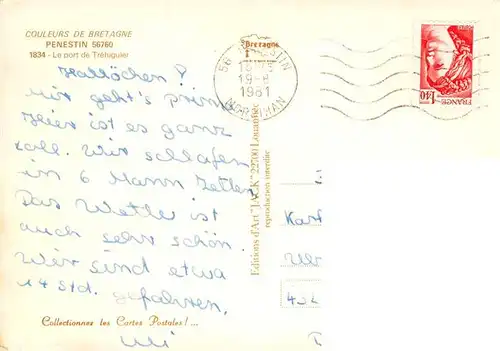 COULEURS DE BRETAGNE
PENESTIN 56760
1834 - Le port de Tréhiguier
Hallöchen!
Mir geht's prima
hier ist es ganz
toll. Wir schlafen
in 6 Mann Zelten.
Das Wetter ist
auch sehr schön.
Wir sind etwa
14 Std. gefahren.
Uli
Collectionnez les Cartes Postales! ...
Bretagne
56 PENESTIN
1981
MORBIHAN
Editions d'Art "JACK" 22500 Louannec
reproduction interdite
1,40
FRANCE